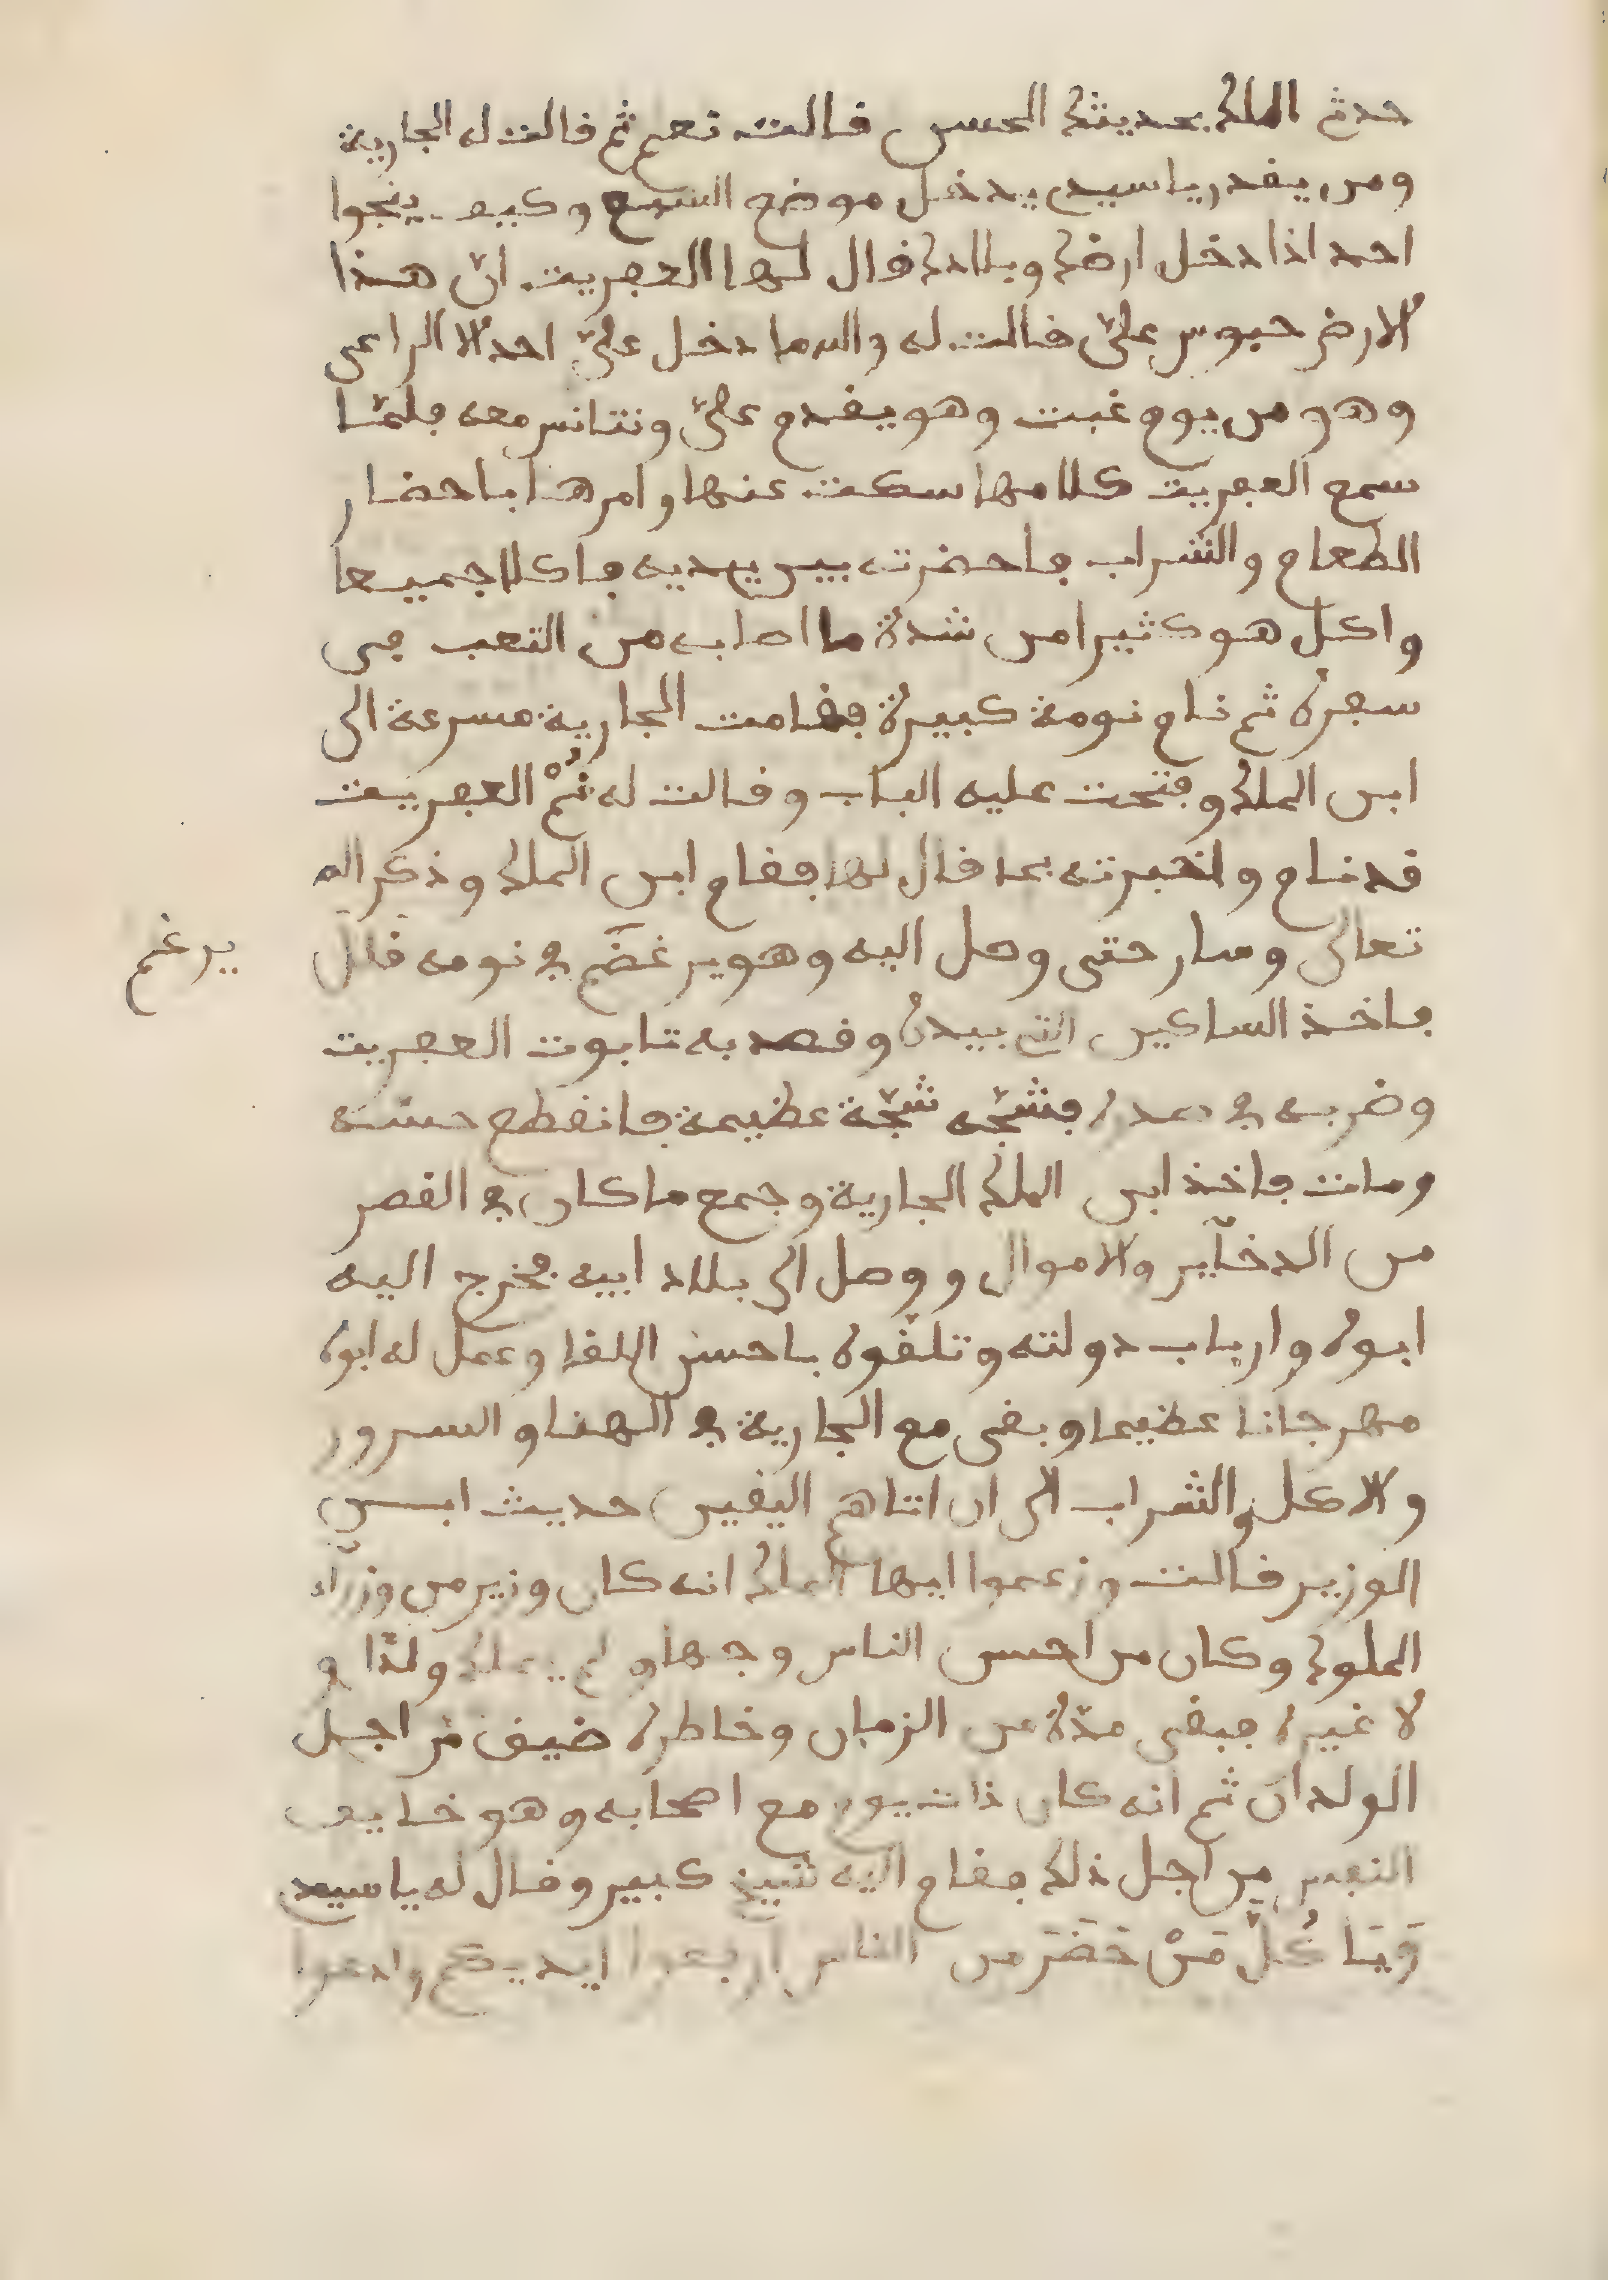 حدث الملك بحديثك الحسن قالت نعم ثم قالت له الجارية
ومن يقدر يا سيدي يدخل موضع السبع وكيف ينجوا
احد اذا دخل ارضك وبلادك قال لها العفريت انّ هذا
الارض حبوس عليّ قالت له والله ما دخل عليّ احد الا الراعي
وهو من يوم غبت وهو يقدم عليّ ونتانس معه فلمّا
سمع العفريت كلامها سكت عنها وامرها باحضار
الطعام والشراب فاحضرته بين يديه فاكلا جميعا
واكل هو كثيرا من شدة ما اصابه من التعب في
سفره ثم نام نومة كبيرة فقامت الجارية مسرعة الى
ابن الملك وفتحت عليه الباب وقالت له قُمْ العفريت
قد نام واخبرته بما قال لها فقام ابن الملك وذكر الله
تعالى وسار حتى وصل اليه وهو يرغضَم في نومه قال
يرغم
فاخذ الساكين التي بيده وقصد به تابوت العفريت
وضربه في صدره فشجّه شجّة عظيمة فانقطع حسّه
ومات فاخذ ابن الملك الجارية وجمع ما كان في القصر
من الدخآير والاموال ووصل الى بلاد ابيه فخرج اليه
ابوه وارباب دولته وتلقّوه باحسن اللقا وعمل له ابوه
مهرجانا عظيما وبقى مع الجارية في الهنا والسرور
والاكل والشراب الى ان اتاهم اليقين حديث ابن
الوزير قالت وزعموا ايها الملك انه كان وزير من وزرآء
الملوك وكان من احسن الناس وجها ولم يملك ولدًا و
لا غيره فبقى مدّة من الزمان وخاطره ضيق من اجل
الولدان ثم انه كان ذات يوم مع اصحابه وهو خايف
النفس من اجل ذلك فقام اليه شيخ كبير وقال له يا سيدي
وَيَا كُلَّ مَنْ حَضَرَ من الناس ارفعوا ايديكم وادعوا